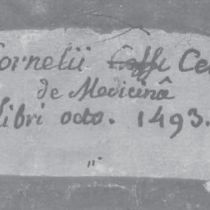 Cornelii Celsi Ce
de Medicinâ
libri octo. 1493.